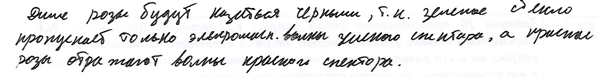 Дине розы будут казаться чёрными, т.к. зеленое стекло
пропускает только электромагн. волны зеленого спектра, а красные
розы отражают волны красного спектора.